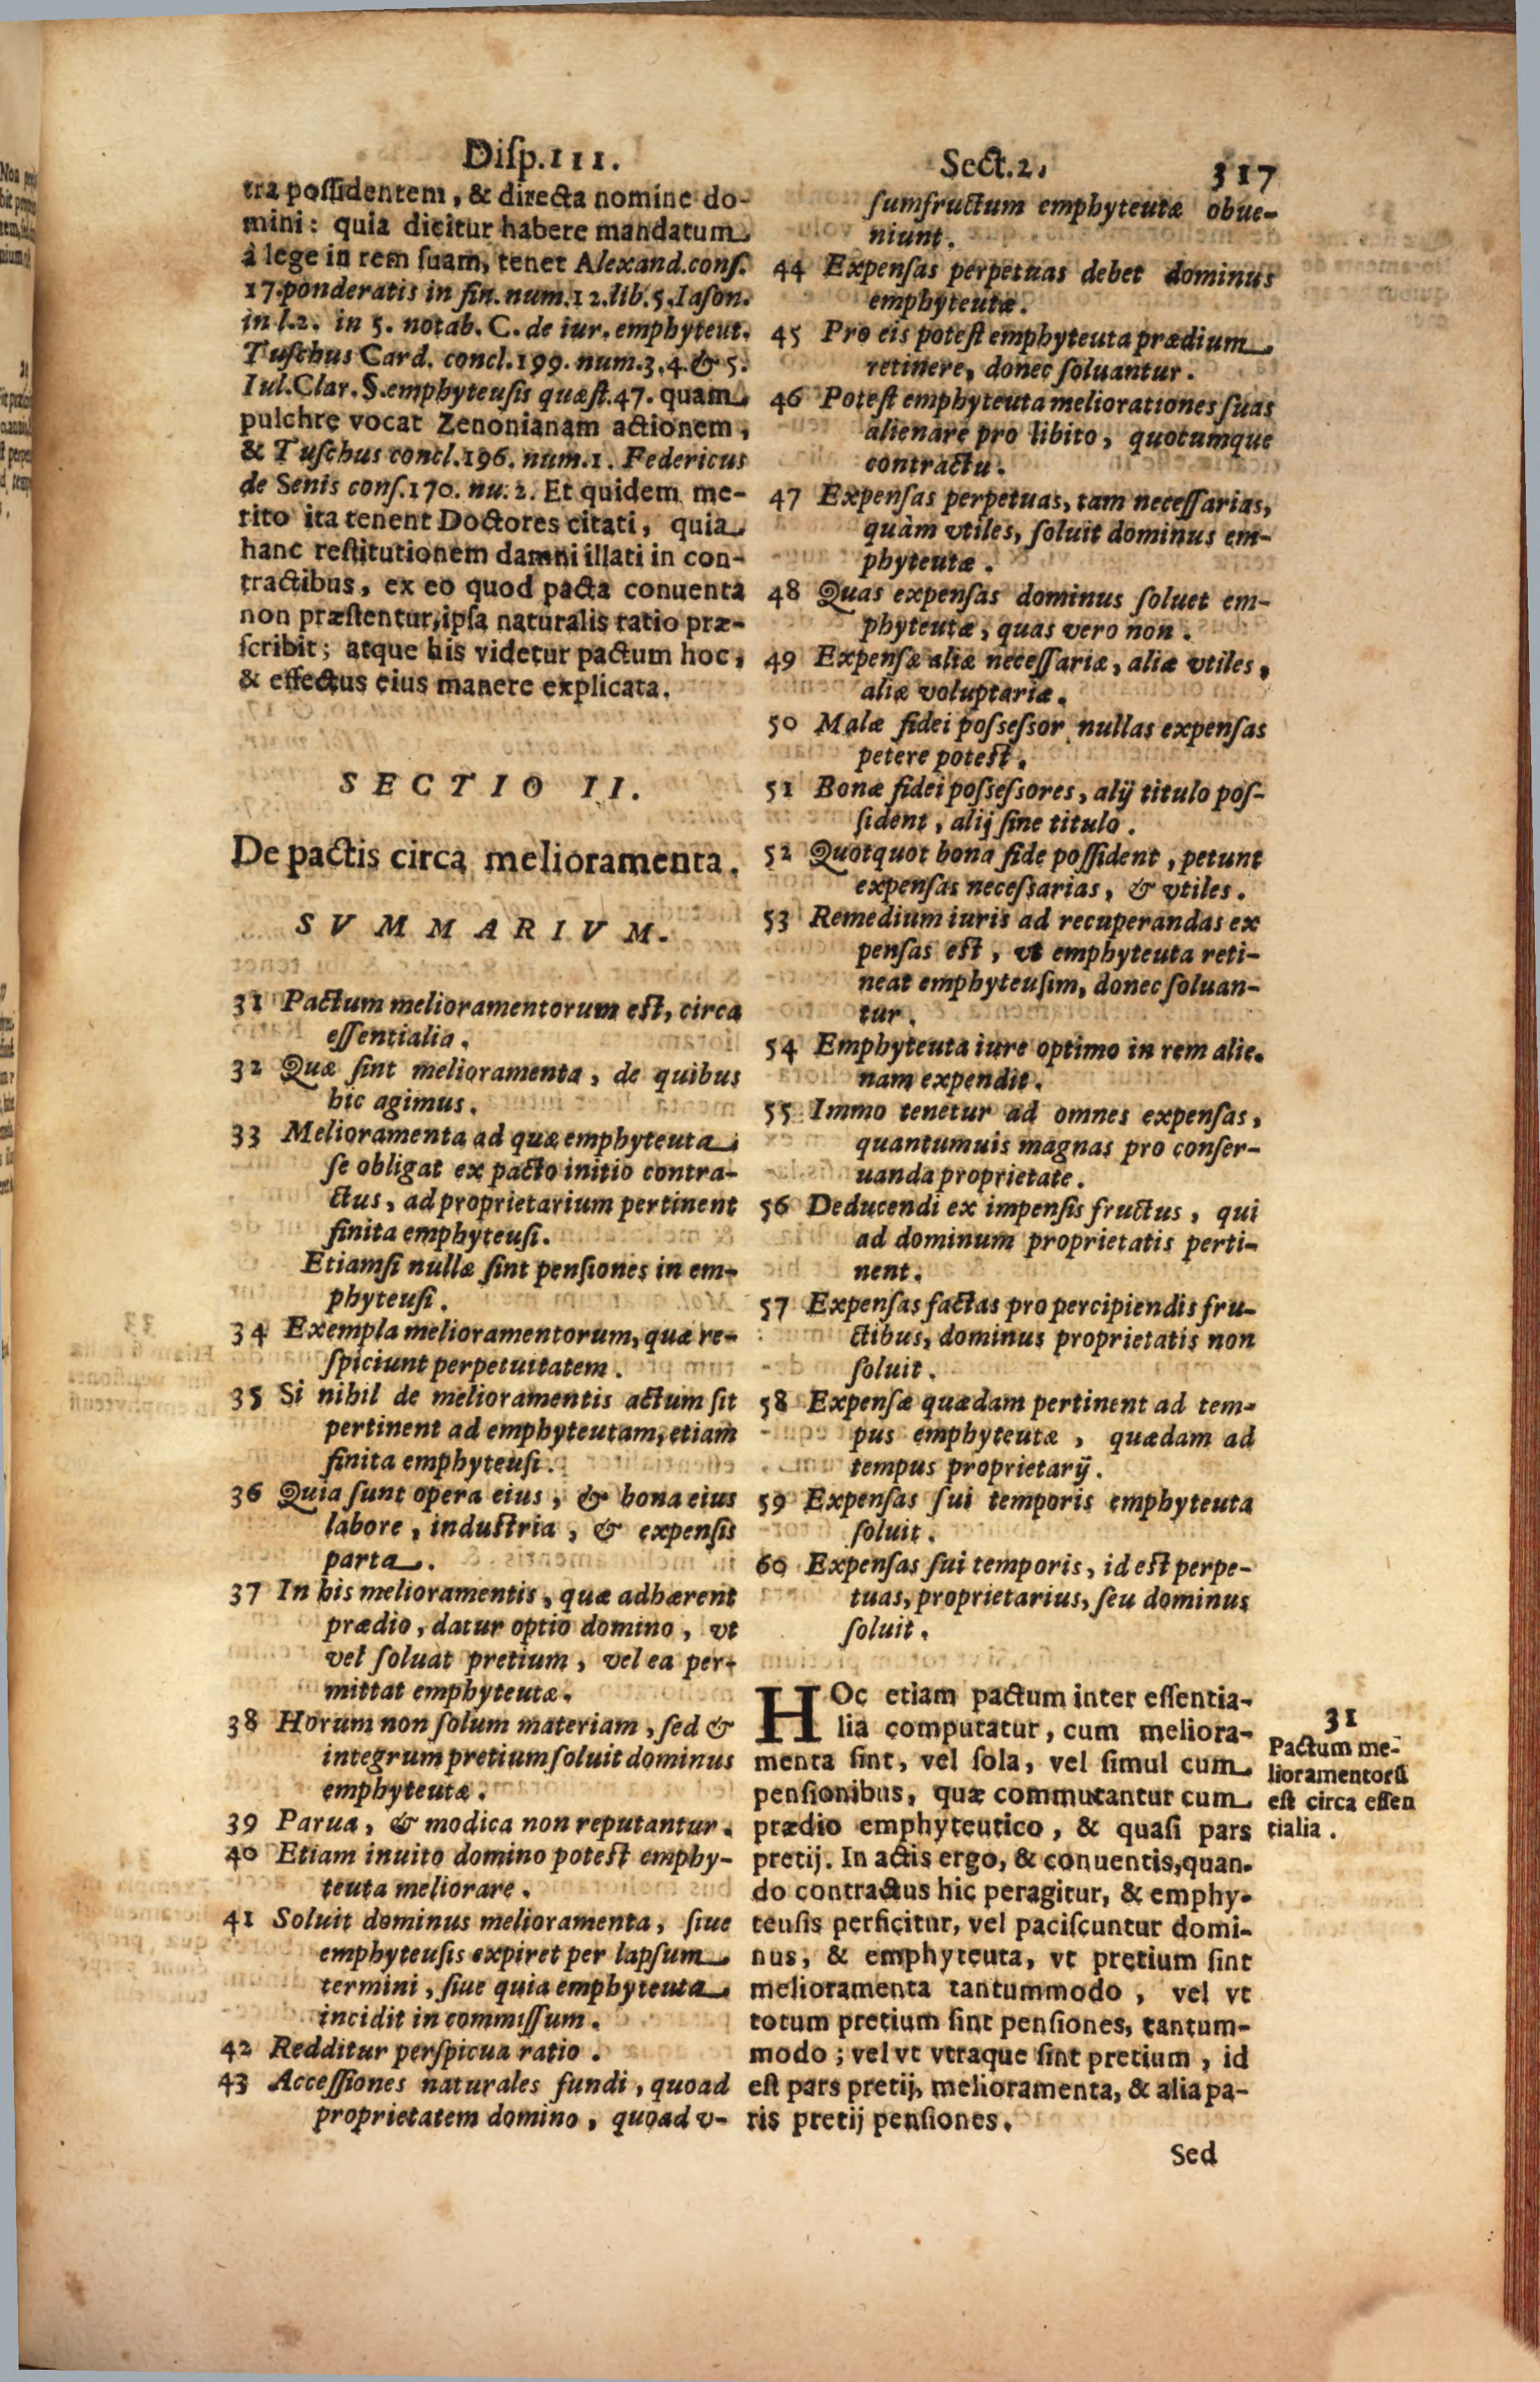 Disp.III.
tra possidentem, & directa nomine do-
mini: quia dicitur habere mandatum
à lege in rem suam, tenet Alexand.cons.
17.ponderatis in fin.num.12.lib.5.Iason.
in l.2. in 5. notab. C. de iur. emphyteut.
Tuschus Card. concl.199. num.3.4.& 5.
Iul.Clar.§.emphyteusis quæst.47. quam
pulchre vocat Zenonianam actionem,
& Tuschus concl.196. num.1. Federicus
de Senis cons.170. nu. 2. Et quidem me-
rito ita tenent Doctores citati, quia
hanc restitutionem damni illati in con-
tractibus, ex eo quod pacta conuenta
non præstentur, ipsa naturalis ratio præ-
scribit; atque his videtur pactum hoc,
& effectus eius manere explicata.
SECTIO II.
De pactis circa melioramenta.
SVMMARIVM.
31 Pactum melioramentorum est, circa
essentialia.
32 Quæ sint melioramenta, de quibus
hic agimus.
33 Melioramenta ad quæ emphyteuta
se obligat ex pacto initio contra-
ctus, ad proprietarium pertinent
finita emphyteusi.
Etiamsi nullæ sint pensiones in em-
phyteusi.
34 Exempla melioramentorum, quæ re-
spiciunt perpetuitatem.
35 Si nihil de melioramentis actum sit
pertinent ad emphyteutam, etiam
finita emphyteusi.
36 Quia sunt opera eius, & bona eius
labore, industria, & expensis
parta.
37 In his melioramentis, quæ adhærent
prædio, datur optio domino, vt
vel soluat pretium, vel ea per-
mittat emphyteutæ.
38 Horum non solum materiam, sed &
integrum pretium soluit dominus
emphyteutæ.
39 Parua, & modica non reputantur.
40 Etiam inuito domino potest emphy-
teuta meliorare.
41 Soluit dominus melioramenta, siue
emphyteusis expiret per lapsum
termini, siue quia emphyteuta
incidit in commissum.
42 Redditur perspicua ratio.
43 Accessiones naturales fundi, quoad
proprietatem domino, quoad v-
Sect.2. 317
sumfructum emphyteutæ obue-
niunt.
44 Expensas perpetuas debet dominus
emphyteutæ.
45 Pro eis potest emphyteuta prædium
retinere, donec soluantur.
46 Potest emphyteuta meliorationes suas
alienare pro libito, quocumque
contractu.
47 Expensas perpetuas, tam necessarias,
quàm vtiles, soluit dominus em-
phyteutæ.
48 Quas expensas dominus soluet em-
phyteutæ, quas vero non.
49 Expensæ aliæ necessariæ, aliæ vtiles,
aliæ voluptariæ.
50 Malæ fidei possessor nullas expensas
petere potest.
51 Bonæ fidei possessores, alij titulo pos-
sident, alij sine titulo.
52 Quotquot bona fide possident, petunt
expensas necessarias, & vtiles.
53 Remedium iuris ad recuperandas ex
pensas est, vt emphyteuta reti-
neat emphyteusim, donec soluan-
tur.
54 Emphyteuta iure optimo in rem alie-
nam expendit.
55 Immo tenetur ad omnes expensas,
quantumuis magnas pro conser-
uanda proprietate.
56 Deducendi ex impensis fructus, qui
ad dominum proprietatis perti-
nent.
57 Expensas factas pro percipiendis fru-
ctibus, dominus proprietatis non
soluit.
58 Expensæ quædam pertinent ad tem-
pus emphyteutæ, quædam ad
tempus proprietarij.
59 Expensas sui temporis emphyteuta
soluit.
60 Expensas sui temporis, id est perpe-
tuas, proprietarius, seu dominus
soluit.
HOc etiam pactum inter essentia-
lia computatur, cum meliora-
menta sint, vel sola, vel simul cum
pensionibus, quæ commutantur cum
prædio emphyteutico, & quasi pars
pretij. In actis ergo, & conuentis, quan-
do contractus hic peragitur, & emphy-
teusis perficitur, vel paciscuntur domi-
nus, & emphyteuta, vt pretium sint
melioramenta tantummodo, vel vt
totum pretium sint pensiones, tantum-
modo; vel vt vtraque sint pretium, id
est pars pretij, melioramenta, & alia pa-
ris pretij pensiones.
Sed
31
Pactum me-
lioramentorũ
est circa essen
tialia.